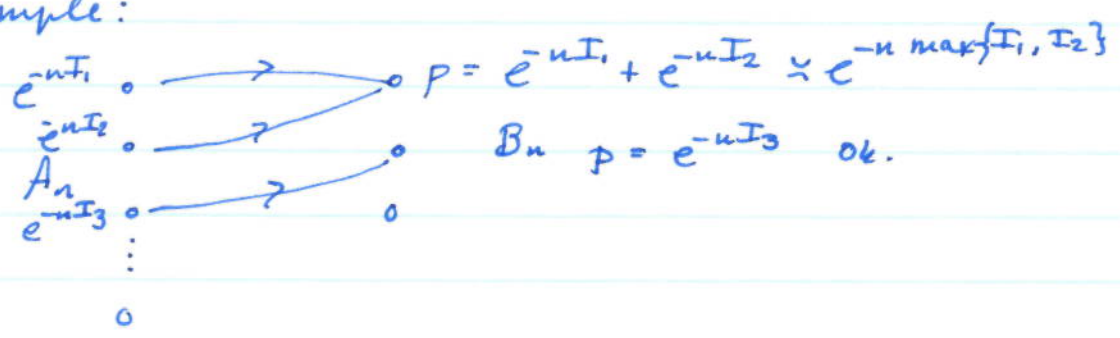 mple:
e^{-nI_1} p = e^{-nI_1} + e^{-nI_2} ≍ e^{-n max{I_1, I_2}}
e^{-nI_2} B_n p = e^{-nI_3} ok.
A_n
e^{-nI_3}